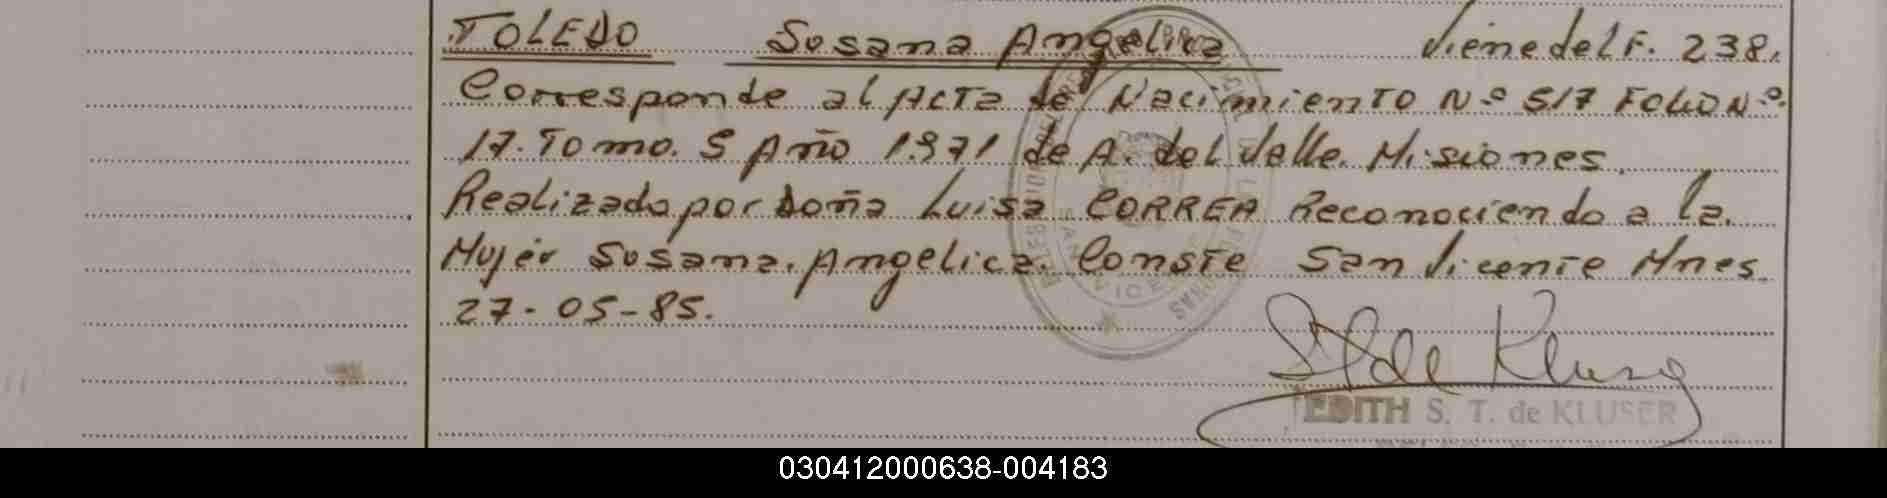 TOLEDO Susana Angelica Viene del F. 238.
Corresponde al Acta de Nacimiento Nº 517 Folio Nº
17. Tomo. 5 Año 1.971 de A. del Valle. Misiones.
Realizado por Doña Luisa CORREA Reconociendo a la.
Mujer Susana. Angelica. Conste San Vicente Mnes.
27-05-85.
S T de Kluser
EDITH S. T. de KLUSER
030412000638-004183